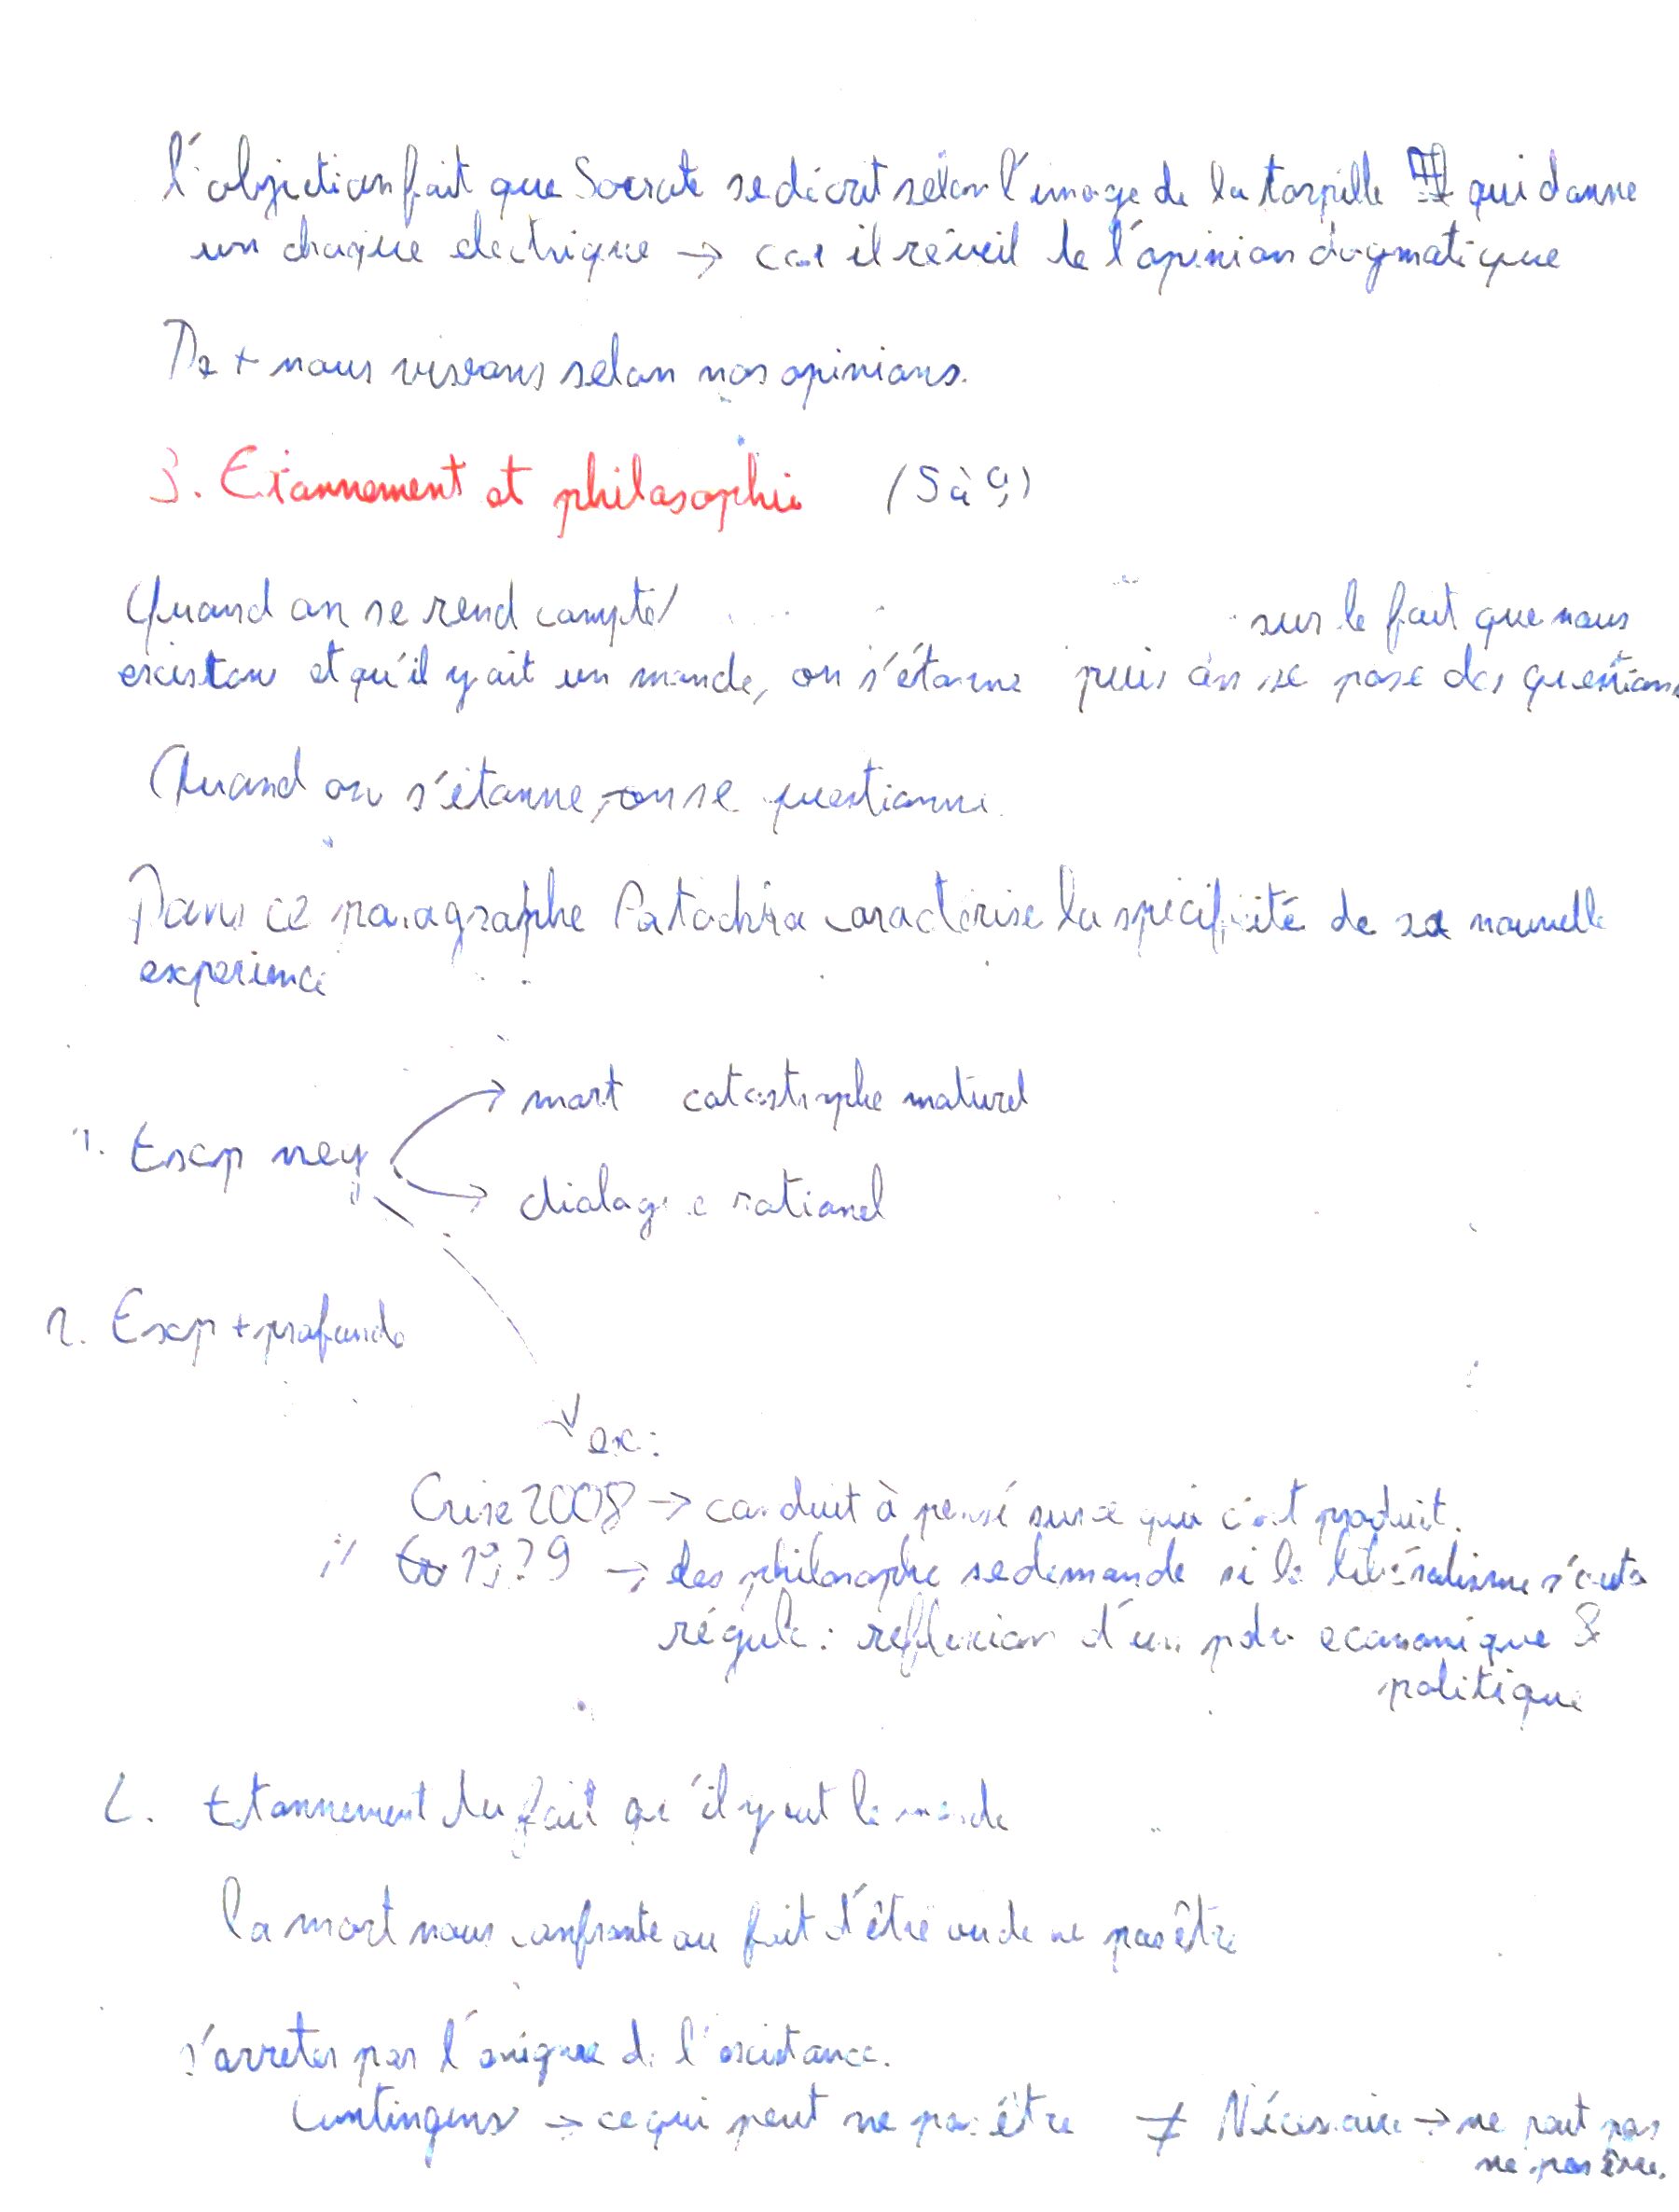 l'objection fait que Socrate se décrit selon l'image de la torpille qui donne
un choque electrique → car il réveil de l'opinion dogmatique
De + nous vivrons selon nos opinions.
3. Etonnement et philosophie (5 à 9)
Quand on se rend compte sur le fait que nous
existons et qu'il y ait un monde, on s'étonne puis on se pose des questions
Quand on s'étonne, on se questionne.
Dans ce paragraphe Patochka caractérise la spécificité de sa nouvelle
experience
→ mort catastrophe naturel
1. Exp neg
→ dialogue rationel
2. Exp + profonde
ex :
Crise 2008 → conduit à pensé sur ce qui c'est produit.
" 1929 → des philosophe se demande si le libéralisme s'auto
régule : reflexion d'un pdv economique &
politique
2. Etonnement du fait qu'il y ait le monde
la mort nous confronte au fait d'être ou de ne pas être
s'arreter par l'enigme de l'existance.
Contingens → ce qui peut ne pas être ≠ Nécessaire → ne peut pas
ne pas être.